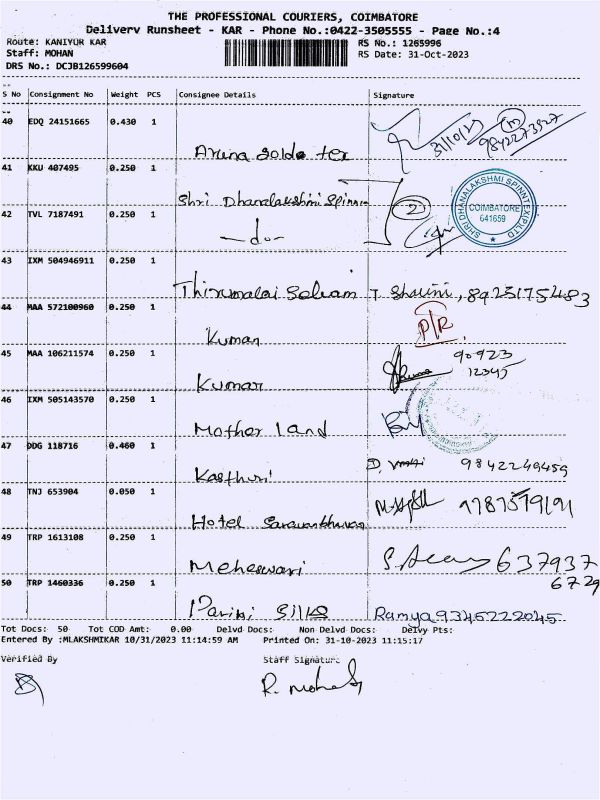 THE PROFESSIONAL COURIERS, COIMBATORE
Delivery Runsheet - KAR - Phone No.:0422-3505555 - Page No.:4
Route: KANIYUR KAR RS No.: 1265996
Staff: MOHAN RS Date: 31-Oct-2023
DRS No.: DCJB126599604
S No Consignment No Weight PCS Consignee Details Signature
40 EDQ 24151665 0.430 1 31/10/23 9842273527
Aruna solde tex
41 KKU 407495 0.250 1
Shri Dhanalakshmi Spinnin
42 TVL 7187491 0.250 1 2
-do-
SHRI DHANALAKSHMI SPINNTEX(P)LTD
COIMBATORE
641659
43 IXM 504946911 0.250 1
Thirumalai Selvam T Shalini, 8925175483
44 MAA 572100960 0.250 1 P/R
Kumar
45 MAA 106211574 0.250 1 90923
Kumar 12345
46 IXM 505143570 0.250 1
Mother land
47 DDG 118716 0.460 1 9842249459
Kasthuri
48 TNJ 653904 0.050 1
Hotel Saravanbhavan
49 TRP 1613108 0.250 1 637937
Meheswari 6729
50 TRP 1460336 0.250 1
Parini Silks Ramya 9345222045
Tot Docs: 50 Tot COD Amt: 0.00 Delvd Docs: Non Delvd Docs: Delvy Pts:
Entered By :MLAKSHMIKAR 10/31/2023 11:14:59 AM Printed On: 31-10-2023 11:15:17
Verified By Staff Signature
R. Mohan